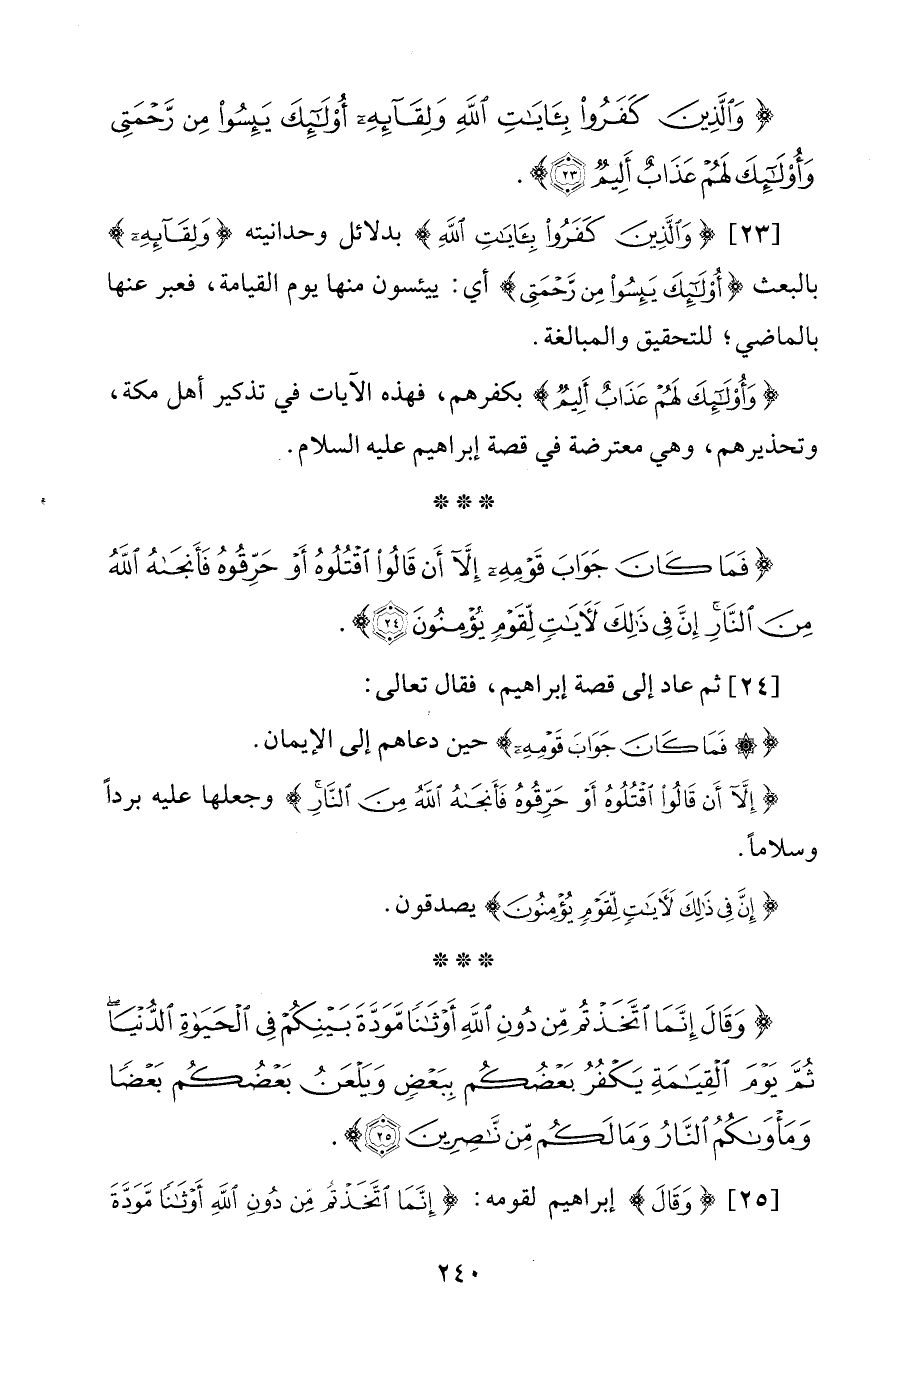 ﴿ وَٱلَّذِينَ كَفَرُوا۟ بِـَٔايَـٰتِ ٱللَّهِ وَلِقَآئِهِۦٓ أُو۟لَـٰٓئِكَ يَئِسُوا۟ مِن رَّحْمَتِى
وَأُو۟لَـٰٓئِكَ لَهُمْ عَذَابٌ أَلِيمٌ ٢٣ ﴾ .
[٢٣] ﴿ وَٱلَّذِينَ كَفَرُوا۟ بِـَٔايَـٰتِ ٱللَّهِ ﴾ بدلائل وحدانيته ﴿ وَلِقَآئِهِۦٓ ﴾
بالبعث ﴿ أُو۟لَـٰٓئِكَ يَئِسُوا۟ مِن رَّحْمَتِى ﴾ أي: ييئسون منها يوم القيامة، فعبر عنها
بالماضي؛ للتحقيق والمبالغة.
﴿ وَأُو۟لَـٰٓئِكَ لَهُمْ عَذَابٌ أَلِيمٌ ﴾ بكفرهم، فهذه الآيات في تذكير أهل مكة،
وتحذيرهم، وهي معترضة في قصة إبراهيم عليه السلام.
* * *
﴿ فَمَا كَانَ جَوَابَ قَوْمِهِۦٓ إِلَّآ أَن قَالُوا۟ ٱقْتُلُوهُ أَوْ حَرِّقُوهُ فَأَنجَىٰهُ ٱللَّهُ
مِنَ ٱلنَّارِ ۚ إِنَّ فِى ذَٰلِكَ لَـَٔايَـٰتٍ لِّقَوْمٍ يُؤْمِنُونَ ٢٤ ﴾ .
[٢٤] ثم عاد إلى قصة إبراهيم، فقال تعالى:
﴿ ۞ فَمَا كَانَ جَوَابَ قَوْمِهِۦٓ ﴾ حين دعاهم إلى الإيمان.
﴿ إِلَّآ أَن قَالُوا۟ ٱقْتُلُوهُ أَوْ حَرِّقُوهُ فَأَنجَىٰهُ ٱللَّهُ مِنَ ٱلنَّارِ ۚ ﴾ وجعلها عليه برداً
وسلاماً.
﴿ إِنَّ فِى ذَٰلِكَ لَـَٔايَـٰتٍ لِّقَوْمٍ يُؤْمِنُونَ ﴾ يصدقون.
* * *
﴿ وَقَالَ إِنَّمَا ٱتَّخَذْتُم مِّن دُونِ ٱللَّهِ أَوْثَـٰنًا مَّوَدَّةَ بَيْنِكُمْ فِى ٱلْحَيَوٰةِ ٱلدُّنْيَا ۖ
ثُمَّ يَوْمَ ٱلْقِيَـٰمَةِ يَكْفُرُ بَعْضُكُم بِبَعْضٍ وَيَلْعَنُ بَعْضُكُم بَعْضًا
وَمَأْوَىٰكُمُ ٱلنَّارُ وَمَا لَكُم مِّن نَّـٰصِرِينَ ٢٥ ﴾ .
[٢٥] ﴿ وَقَالَ ﴾ إبراهيم لقومه: ﴿ إِنَّمَا ٱتَّخَذْتُم مِّن دُونِ ٱللَّهِ أَوْثَـٰنًا مَّوَدَّةَ
٢٤٠